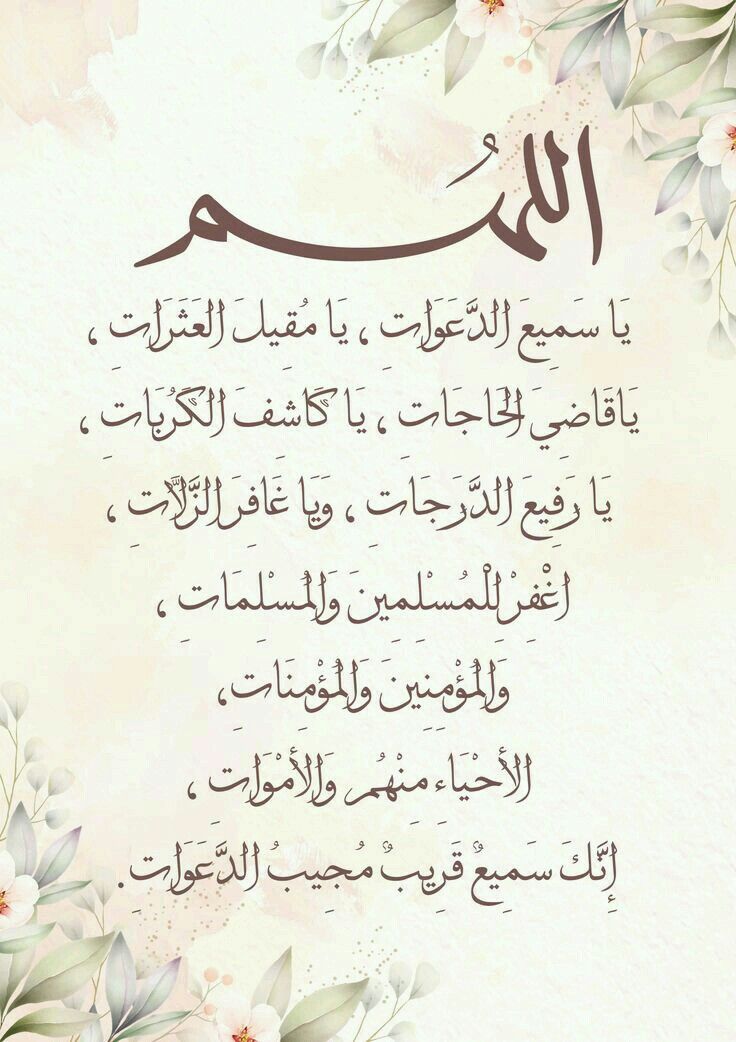 اللهُم
يَا سَمِيعَ الدَّعَوَاتِ ، يَا مُقِيلَ العَثَرَاتِ ،
يَاقَاضِيَ الحَاجَاتِ ، يَا كَاشِفَ الكَرُبَاتِ ،
يَا رَفِيعَ الدَّرَجَاتِ ، وَيَا غَافِرَ الزَّلَّاتِ ،
اغْفِرْ لِلْمُسْلِمِينَ وَالمُسْلِمَاتِ ،
وَالمُؤْمِنِينَ وَالمُؤْمِنَاتِ ،
الأَحْيَاءِ مِنْهُم وَالأَمْوَاتِ ،
إِنَّكَ سَمِيعٌ قَرِيبٌ مُجِيبُ الدَّعَوَاتِ .